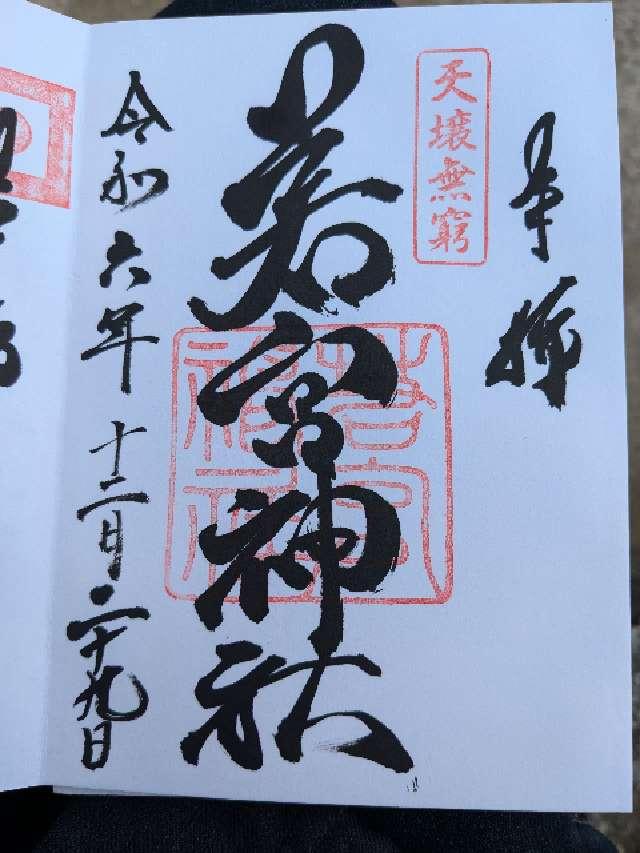 奉拝
天壌無窮
若宮神社
令和六年十二月二十九日